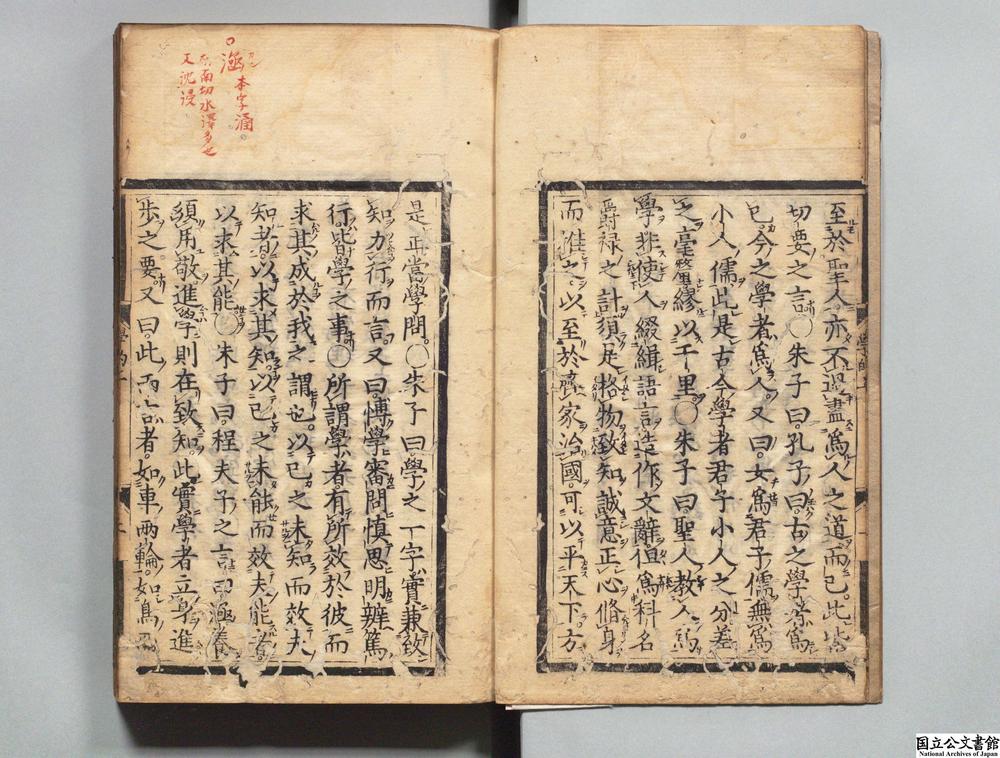 至於聖人亦不過盡爲人之道而已此皆
切要之言○朱子曰孔子曰古之學者爲
已今之學者爲人又曰女爲君子儒無爲
小人儒此是古今學者君子小人之分差
之毫釐繆以千里○朱子曰聖人教人爲
學非使人綴緝語言造作文辭但爲科名
爵祿之計須是格物致知誠意正心脩身
而推之以至於齊家治國可以平天下方
○涵本字涵
胡南切水澤多也
又沈浸
是正當學問○朱子曰學之一字實兼致
知力行而言又曰博學審問慎思明辨篤
行皆學之事○所謂學者有所效於彼而
求其成於我之謂也以已之未知而效夫
知者以求其知以已之未能而效夫能者
以求其能○朱子曰程夫子之言曰涵養
須用敬進學則在致知此實學者立身進
步之要又曰此兩言者如車兩輪如鳥
国立公文書館
National Archives of Japan